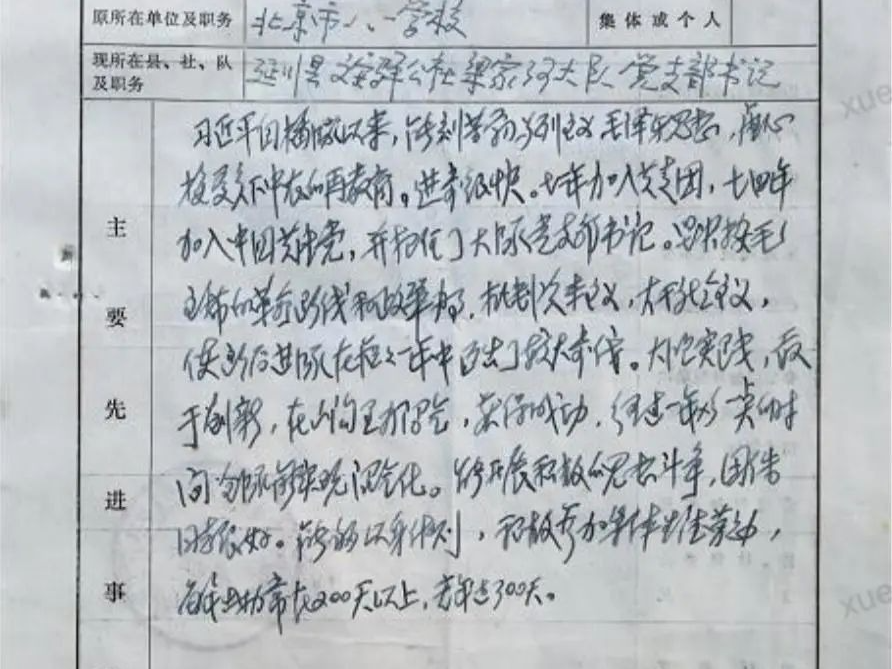 原所在单位及职务 北京市八一学校 集体或个人
现所在县、社、队及职务 延川县文安驿公社梁家河大队党支部书记
主要先进事
习近平自插队以来，能刻苦学习马列主义毛泽东思想，虚心
接受贫下中农的再教育。进步很快。七年加入共青团，七四年
加入中国共产党，并担任了大队党支部书记。坚决按毛
主席的革命路线和政策办事，批判资本主义，大干社会主义，
使后进队在一年中迈出了较大步伐。大胆实践，敢
于创新，在沟里办沼气，获得成功，经过一年多一点的时
间全队实现沼气化。能开展积极的思想斗争，团结
同志很好。能够以身作则，积极参加集体生产劳动，
每年出勤常在200天以上，去年达300天。
xue
xue